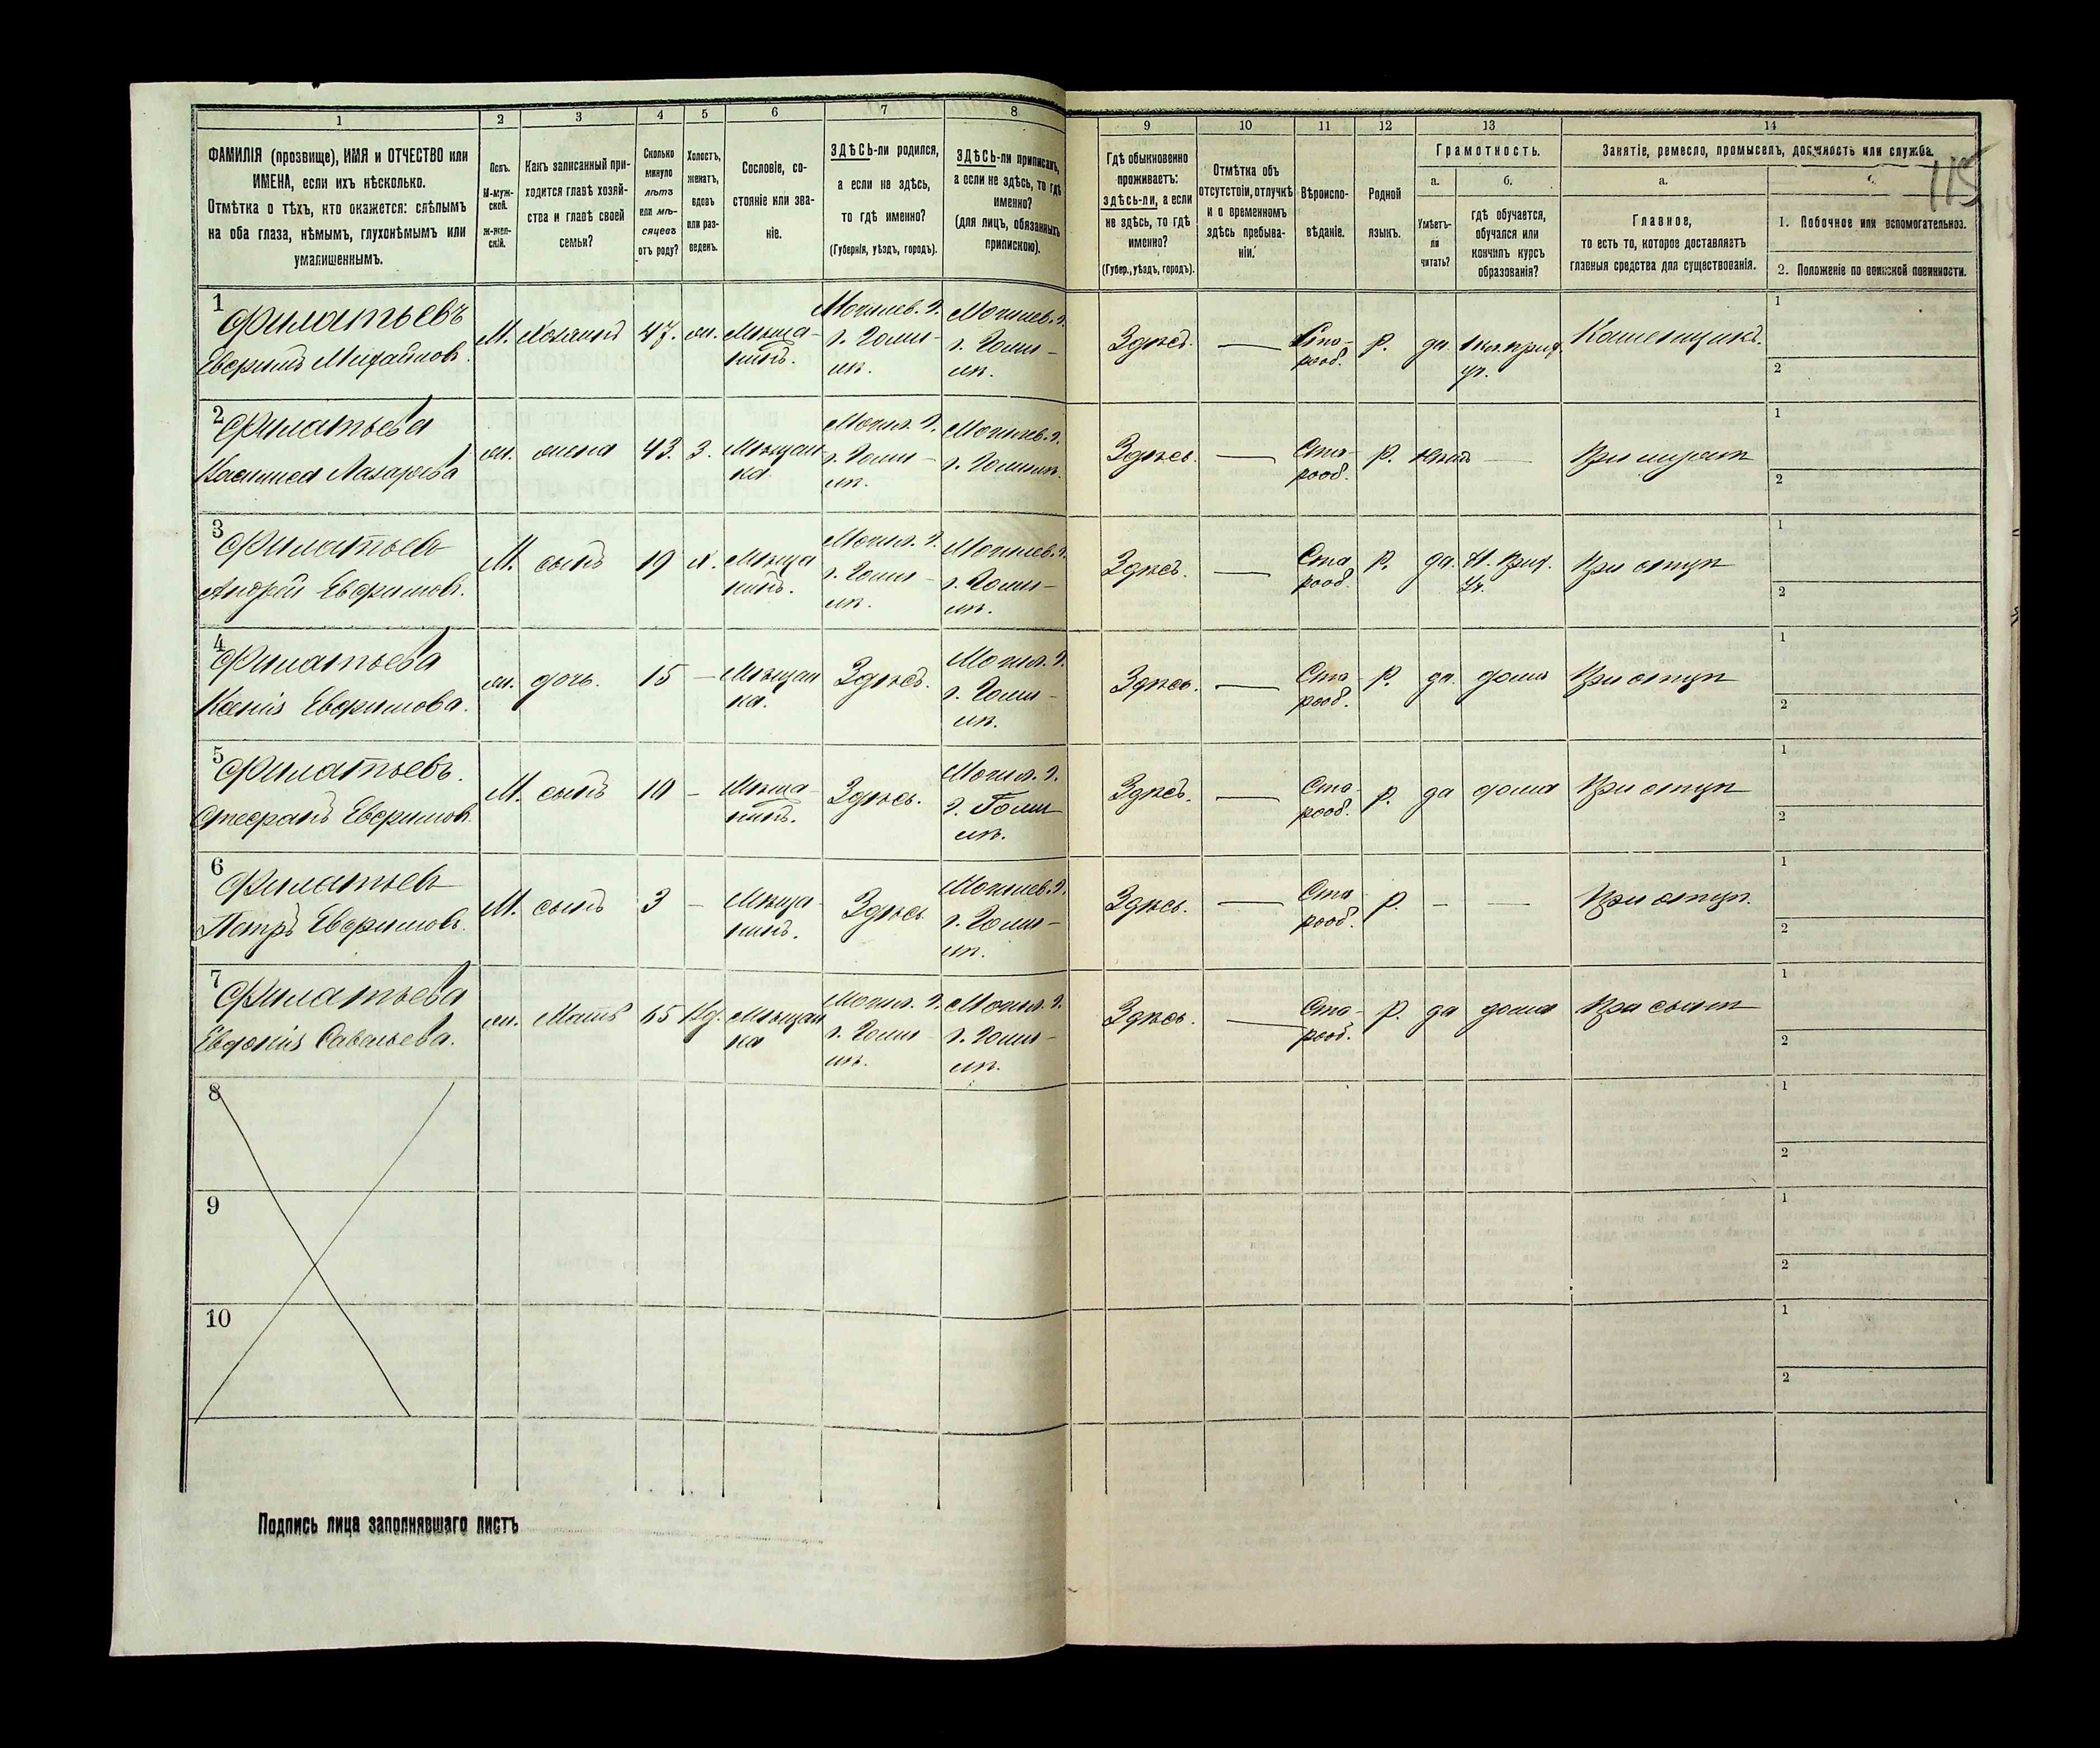 1
2
3
4
5
6
7
8
ФАМИЛІЯ (прозвище), ИМЯ и ОТЧЕСТВО или
ИМЕНА, если ихъ нѣсколько.
Отмѣтка о тѣхъ, кто окажется: слѣпымъ
на оба глаза, нѣмымъ, глухонѣмымъ или
умалишеннымъ.
Полъ.
М-муж-
ской.
Ж-жен-
скій.
Какъ записанный при-
ходится главѣ хозяй-
ства и главѣ своей
семьи?
Сколько
минуло
лѣтъ
или мѣ-
сяцевъ
отъ роду?
Холостъ,
женатъ,
вдовъ
или раз-
веденъ.
Сословіе, со-
стояніе или зва-
ніе.
ЗДѢСЬ-ли родился,
а если не здѣсь,
то гдѣ именно?
(Губернія, уѣздъ, городъ).
ЗДѢСЬ-ли приписанъ,
а если не здѣсь, то гдѣ
именно?
(для лицъ, обязанныхъ
припискою).
9
10
11
12
13
14
Гдѣ обыкновенно
проживаетъ:
здѣсь-ли, а если
не здѣсь, то гдѣ
именно?
(Губер., уѣздъ, городъ).
Отмѣтка объ
отсутствіи, отлучкѣ
и о временномъ
здѣсь пребыва-
ніи.
Вѣроиспо-
вѣданіе.
Родной
языкъ.
Грамотность.
а.
Умѣетъ-
ли
читать?
б.
гдѣ обучается,
обучался или
кончилъ курсъ
образованія?
Занятіе, ремесло, промыселъ, должность или служба.
115
а.
Главное,
то есть то, которое доставляетъ
главныя средства для существованія.
1. Побочное или вспомогательное.
2. Положеніе по воинской повинности.
1
Филатьевъ
Евфимъ Михайлов.
М. Хозяинъ 47. ж. Мѣща-
нинъ.
Могилев. г.
г. Гоми-
лѣ.
Могилев. г.
г. Гоми-
лѣ.
Здѣсь. — Ста-
рооб. р. да.
уч.
1
2
2
Филатьева
Лазарева
ж. жена 43. З. Мѣщан
ка
Могил. г.
г. Гоми-
лѣ.
Могилев. г.
г. Гомилѣ.
Здѣсь. — Ста-
рооб. р. —
При мужѣ
1
2
3
Филатьев
Андрей Евфимов.
М. сынъ 19 х. Мѣща
нинъ.
Могил. г.
г. Гоми-
лѣ.
Могилев. г.
г. Гоми-
лѣ.
Здѣсь. — Ста
рооб. р. да. Н. Прих.
Уч.
При отцѣ
1
2
4
Филатьева
Ксенія Евфимова.
ж. дочь. 15 — Мѣщан
ка. Здѣсь.
Могил. г.
г. Гоми-
лѣ.
Здѣсь. — Ста
рооб. р. да. дома При отцѣ
1
2
5
Филатьевъ.
Стефанъ Евфимов.
М. сынъ 10 — Мѣща-
нинъ. Здѣсь.
Могил. г.
г. Гоми
лѣ.
Здѣсь. — Ста
рооб. р. да дома При отцѣ
1
2
6
Филатьев
Петръ Евфимовъ.
М. сынъ 3 — Мѣща-
нинъ. Здѣсь
Могилев. г.
г. Гоми-
лѣ.
Здѣсь. — Ста
рооб. р. — — При отцѣ.
1
2
7
Филатьева
Евдокія Савельева.
ж. Мать 65 Вд. Мѣщан
ка
Могил. г.
г. Гоми
лѣ.
Могил. г.
г. Гоми-
лѣ.
Здѣсь. — Ста-
рооб. р. да дома При сынѣ
1
2
8
1
2
9
1
2
10
1
2
Подпись лица заполнявшаго листъ